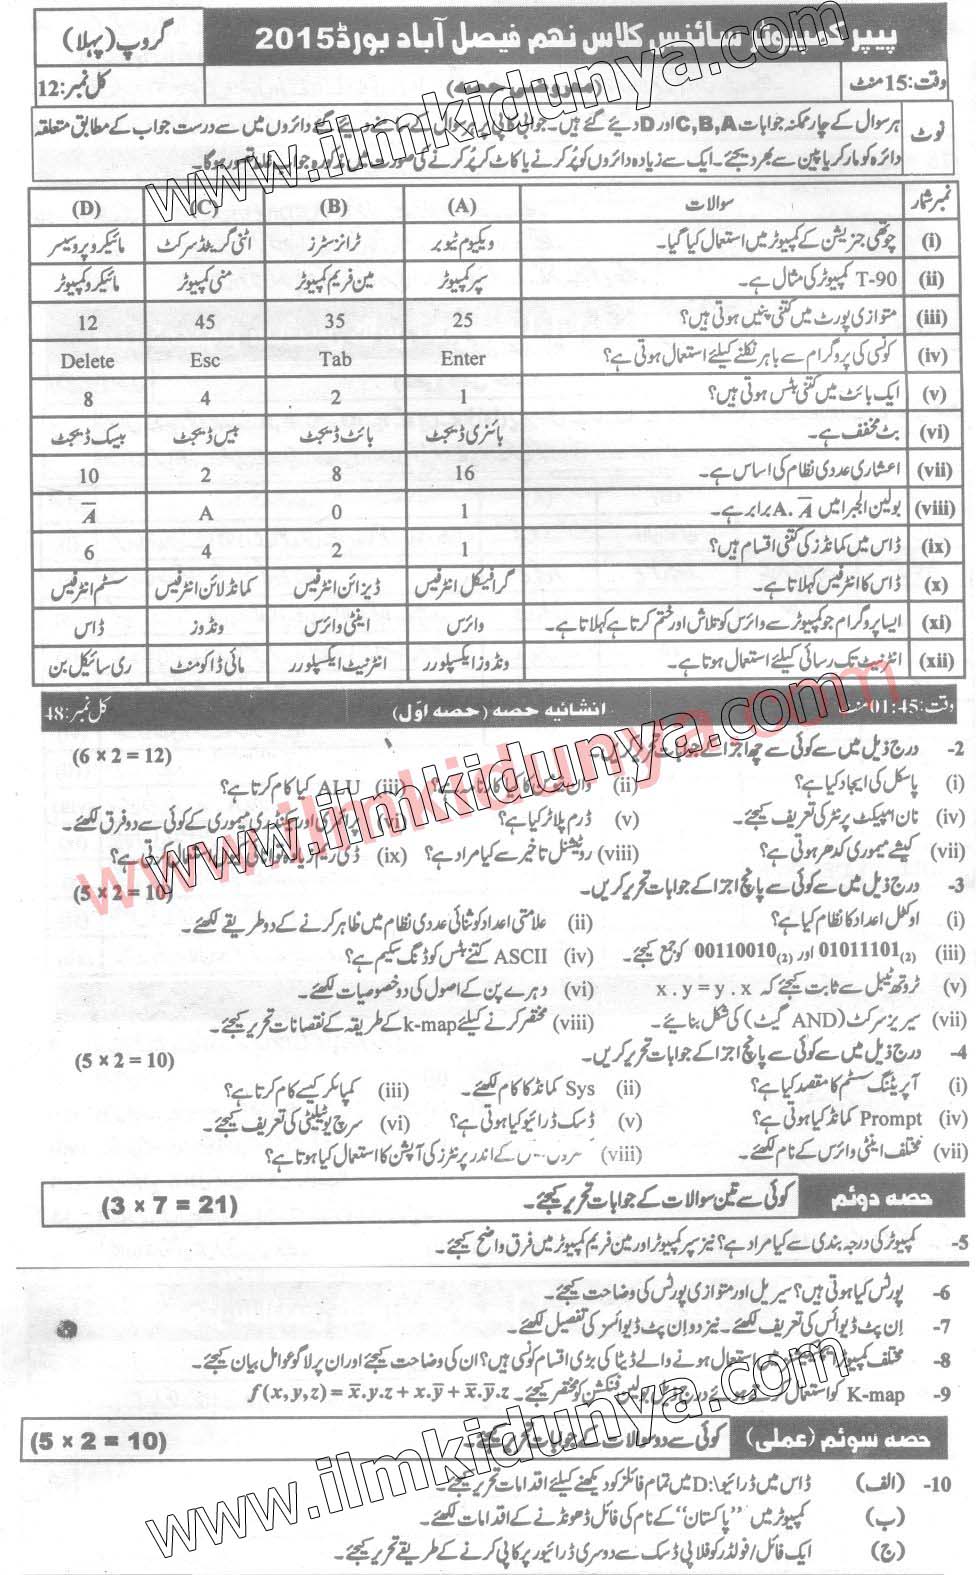 پیپر کمپیوٹر سائنس کلاس نہم فیصل آباد بورڈ 2015
گروپ (پہلا)
وقت: 15 منٹ
(معروضی حصہ)
کل نمبر: 12
نوٹ
ہر سوال کے چار ممکنہ جوابات C,B,A اور D دیئے گئے ہیں۔ جوابی کاپی پر ہر سوال کے سامنے دیئے گئے دائروں میں سے درست جواب کے مطابق متعلقہ
دائرہ کو مارکر یا پین سے بھر دیجئے۔ ایک سے زیادہ دائروں کو پُر کرنے یا کاٹ کر پُر کرنے کی صورت میں مذکورہ جواب غلط تصور ہوگا۔
نمبر شمار سوالات (A) (B) (C) (D)
(i) چوتھی جنریشن کے کمپیوٹر میں استعمال کیا گیا۔ ویکیوم ٹیوبز ٹرانزسٹرز انٹی گریٹڈ سرکٹ مائیکرو پروسیسر
(ii) T-90 کمپیوٹر کی مثال ہے۔ سپر کمپیوٹر مین فریم کمپیوٹر منی کمپیوٹر مائیکرو کمپیوٹر
(iii) متوازی پورٹ میں کتنی پنیں ہوتی ہیں؟ 25 35 45 12
(iv) کونسی کی پروگرام سے باہر نکلنے کیلئے استعمال ہوتی ہے؟ Enter Tab Esc Delete
(v) ایک بائٹ میں کتنی بٹس ہوتی ہیں؟ 1 2 4 8
(vi) بٹ مخفف ہے۔ بائنری ڈیجٹ بائٹ ڈیجٹ بیس ڈیجٹ بیسک ڈیجٹ
(vii) اعشاری عددی نظام کی اساس ہے۔ 16 8 2 10
(viii) بولین الجبرا میں A. A̅ برابر ہے۔ 1 0 A A̅
(ix) ڈاس میں کمانڈز کی کتنی اقسام ہیں؟ 1 2 4 6
(x) ڈاس کا انٹرفیس کہلاتا ہے۔ گرافیکل انٹرفیس ڈیزائن انٹرفیس کمانڈ لائن انٹرفیس سسٹم انٹرفیس
(xi) ایسا پروگرام جو کمپیوٹر سے وائرس کو تلاش اور ختم کرتا ہے کہلاتا ہے۔ وائرس اینٹی وائرس ونڈوز ڈاس
(xii) انٹرنیٹ تک رسائی کیلئے استعمال ہوتا ہے۔ ونڈوز ایکسپلورر انٹرنیٹ ایکسپلورر مائی ڈاکومنٹ ری سائیکل بن
وقت: 01:45 منٹ انشائیہ حصہ (حصہ اول) کل نمبر: 48
2- درج ذیل میں سے کوئی سے چھ اجزا کے جوابات تحریر کریں۔ (6 × 2 = 12)
(i) پاسکل کی ایجاد کیا ہے؟ (ii) کا کیا کارنامہ ہے؟ (iii) ALU کیا کام کرتا ہے؟
(iv) نان امپیکٹ پرنٹر کی تعریف کیجئے۔ (v) ڈرم پلاٹر کیا ہے؟ (vi) پرائمری اور سیکنڈری میموری کے کوئی سے دو فرق لکھئے۔
(vii) کیشے میموری کدھر ہوتی ہے؟ (viii) روٹیشنل تاخیر سے کیا مراد ہے؟ (ix) ڈی ریم زیادہ توانائی کیوں استعمال کرتی ہے؟
3- درج ذیل میں سے کوئی سے پانچ اجزا کے جوابات تحریر کریں۔ (5 × 2 = 10)
(i) اوکٹل اعداد کا نظام کیا ہے؟ (ii) علامتی اعداد کو ثنائی عددی نظام میں ظاہر کرنے کے دو طریقے لکھئے۔
(iii) 01011101(2) اور 00110010(2) کو جمع کیجئے۔ (iv) ASCII کتنے بٹس کوڈنگ سکیم ہے؟
(v) ٹروتھ ٹیبل سے ثابت کیجئے کہ x . y = y . x (vi) دہرے پن کے اصول کی دو خصوصیات لکھئے۔
(vii) سیریز سرکٹ (AND گیٹ) کی شکل بنائیے۔ (viii) مختصر کرنے کیلئے k-map کے طریقہ کے نقصانات تحریر کیجئے۔
4- درج ذیل میں سے کوئی سے پانچ اجزا کے جوابات تحریر کریں۔ (5 × 2 = 10)
(i) آپریٹنگ سسٹم کا مقصد کیا ہے؟ (ii) Sys کمانڈ کا کام لکھئے۔ (iii) کمپائلر کیسے کام کرتا ہے؟
(iv) Prompt کمانڈ کیا ہوتی ہے؟ (v) ڈسک ڈرائیو کیا ہوتی ہے؟ (vi) سرچ یوٹیلیٹی کی تعریف کیجئے۔
(vii) مختلف اینٹی وائرس کے نام لکھئے۔ (viii) کے اندر پرنٹرز کی آپشن کا استعمال کیا ہوتا ہے؟
حصہ دوئم کوئی سے تین سوالات کے جوابات تحریر کیجئے۔ (3 × 7 = 21)
5- کمپیوٹر کی درجہ بندی سے کیا مراد ہے؟ نیز سپر کمپیوٹر اور مین فریم کمپیوٹر میں فرق واضح کیجئے۔
6- پورٹس کیا ہوتی ہیں؟ سیریل اور متوازی پورٹس کی وضاحت کیجئے۔
7- اِن پٹ ڈیوائس کی تعریف لکھئے۔ نیز دو اِن پٹ ڈیوائسز کی تفصیل لکھئے۔
8- مختلف کمپیوٹر میں استعمال ہونے والے ڈیٹا کی بڑی اقسام کونسی ہیں؟ ان کی وضاحت کیجئے اور ان پر لاگو عوامل بیان کیجئے۔
9- K-map کو استعمال کرتے ہوئے درج ذیل بولین فنکشن کو مختصر کیجئے۔ f (x, y, z) = x̅.y.z + x.y̅ + x̅.y̅.z
حصہ سوئم (عملی) کوئی سے دو سوالات کے جوابات تحریر کیجئے۔ (5 × 2 = 10)
10- (الف) ڈاس میں ڈرائیو D:\ میں تمام فائلز کو دیکھنے کیلئے اقدامات تحریر کیجئے۔
(ب) کمپیوٹر میں "پاکستان" کے نام کی فائل ڈھونڈنے کے اقدامات لکھئے۔
(ج) ایک فائل/فولڈر کو فلاپی ڈسک سے دوسری ڈرائیور پر کاپی کرنے کے طریقے تحریر کیجئے۔
www.ilmkidunya.com
www.ilmkidunya.com
www.ilmkidunya.com
www.ilmkidunya.com